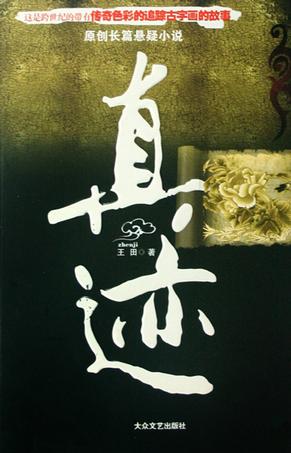 这是跨世纪的带有传奇色彩的追踪古字画的故事
原创长篇悬疑小说
真迹
zhenji
王田◎著
大众文艺出版社